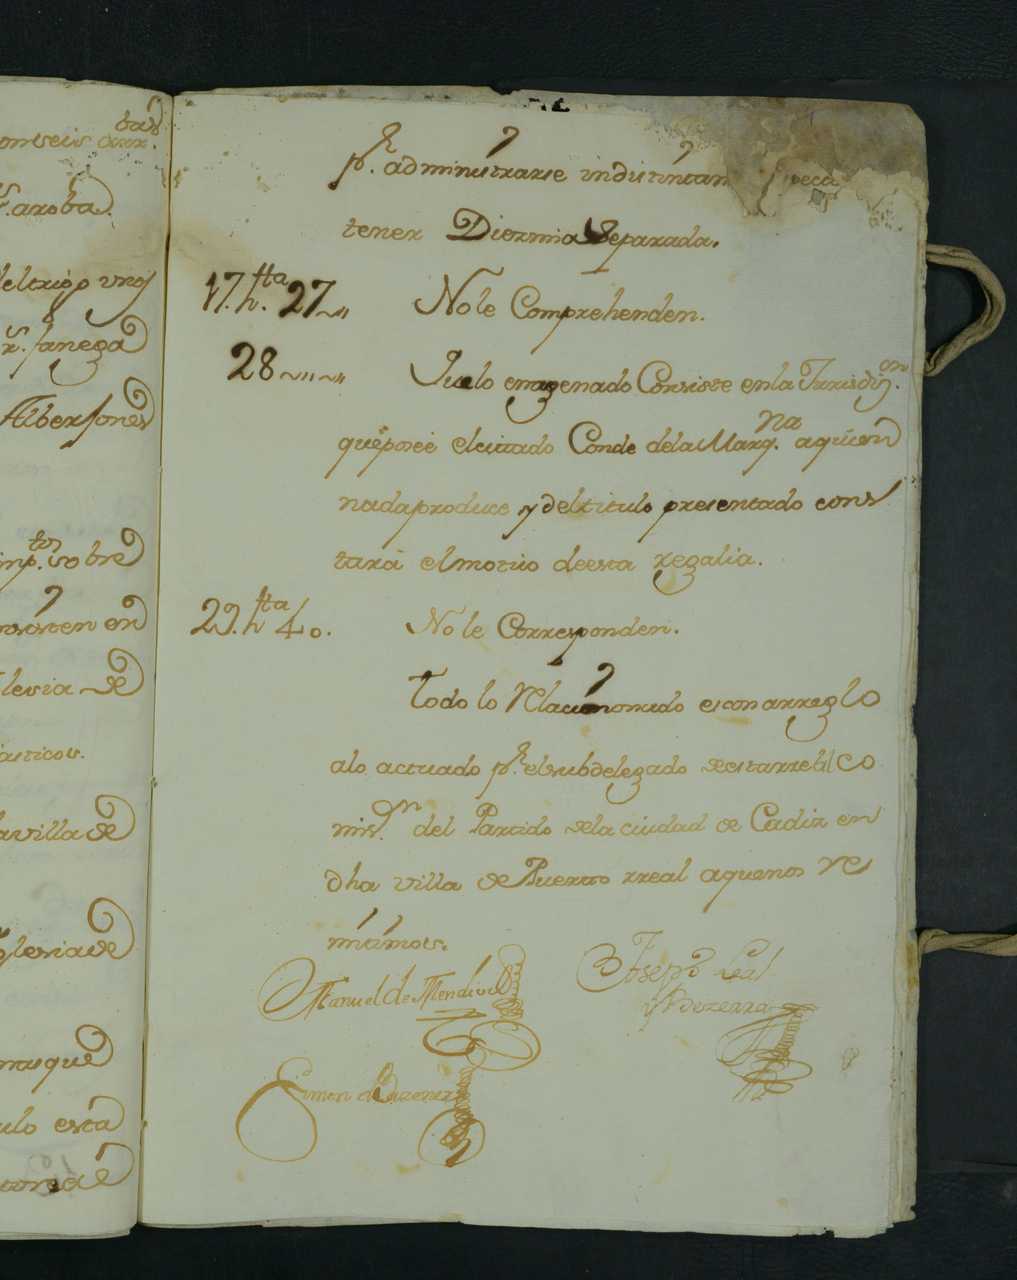 bas
onseis arr.
s. aroba.
deltrigo p unos
r.s fanega
Alberjones
tos
imp. sobre
nsisten en
lesia de
iasticos.
la villa de
Yglesia de
mas que
ulo esta
p.r administrarse indistintam peca
tener Diezmia Separada.
17. h.tta 27 No le Comprehenden.
28 Suelo enagenado Consiste en la Jurisdi.on
que posee el citado Conde de la Marq.na a quien
nada produce y del titulo presentado cons
tará el motiuo de esta regalia.
29. h.tta 40. No le Corresponden.
Todo lo Relacionado es con arreglo
a lo actuado p.r el subdelegado de esta rrel Co
mis.on del Partido de la ciudad de Cadiz en
dha villa de Puerto rreal a que nos Re
mitimos.
Manuel de Mendivil
Joseph Leal
y Bezerra
Simon de